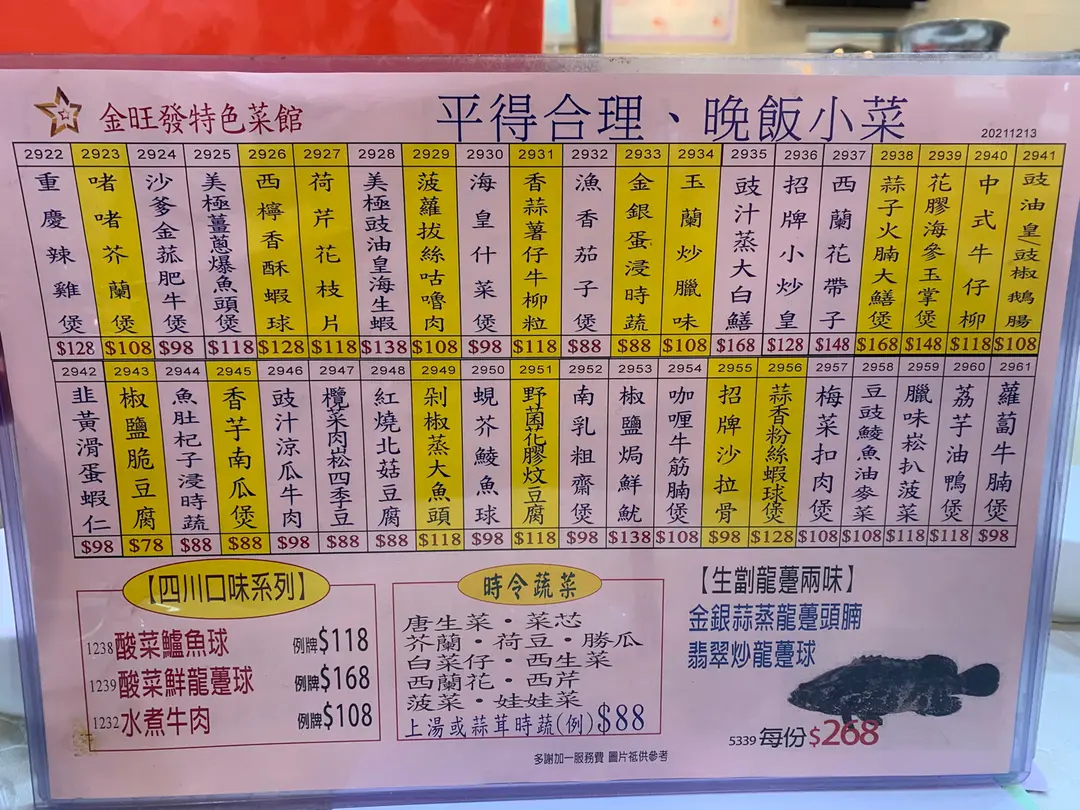 金旺發特色菜館
平得合理、晚飯小菜
20211213
2922 重慶辣雞煲 $128
2923 啫啫芥蘭煲 $108
2924 沙爹金菇肥牛煲 $98
2925 美極薑蔥爆魚頭煲 $118
2926 西檸香酥蝦球 $128
2927 荷芹花枝片 $118
2928 美極豉油皇海生蝦 $138
2929 菠蘿拔絲咕嚕肉 $108
2930 海皇什菜煲 $98
2931 香蒜薯仔牛柳粒 $118
2932 漁香茄子煲 $88
2933 金銀蛋浸時蔬 $88
2934 玉蘭炒臘味 $108
2935 豉汁蒸大白鱔 $168
2936 招牌小炒皇 $128
2937 西蘭花帶子 $148
2938 蒜子火腩大鱔煲 $168
2939 花膠海參玉掌煲 $148
2940 中式牛仔柳 $118
2941 豉油皇/豉椒鵝腸 $108
2942 韭黃滑蛋蝦仁 $98
2943 椒鹽脆豆腐 $78
2944 魚肚杞子浸時蔬 $88
2945 香芋南瓜煲 $88
2946 豉汁涼瓜牛肉 $98
2947 欖菜肉崧四季豆 $88
2948 紅燒北菇豆腐 $88
2949 剁椒蒸大魚頭 $118
2950 蜆芥鯪魚球 $98
2951 野菌花膠炆豆腐 $118
2952 南乳粗齋煲 $98
2953 椒鹽焗鮮魷 $138
2954 咖喱牛筋腩煲 $108
2955 招牌沙拉骨 $98
2956 蒜香粉絲蝦球煲 $128
2957 梅菜扣肉煲 $108
2958 豆豉鯪魚油麥菜 $108
2959 臘味崧扒菠菜 $118
2960 荔芋油鴨煲 $118
2961 蘿蔔牛腩煲 $98
【四川口味系列】
1238 酸菜鱸魚球 例牌$118
1239 酸菜鮮龍躉球 例牌$168
1232 水煮牛肉 例牌$108
時令蔬菜
唐生菜·菜芯
芥蘭·荷豆·勝瓜
白菜仔·西生菜
西蘭花·西芹
菠菜·娃娃菜
上湯或蒜茸時蔬(例)$88
【生劏龍躉兩味】
金銀蒜蒸龍躉頭腩
翡翠炒龍躉球
5339 每份$268
多謝加一服務費 圖片祇供參考